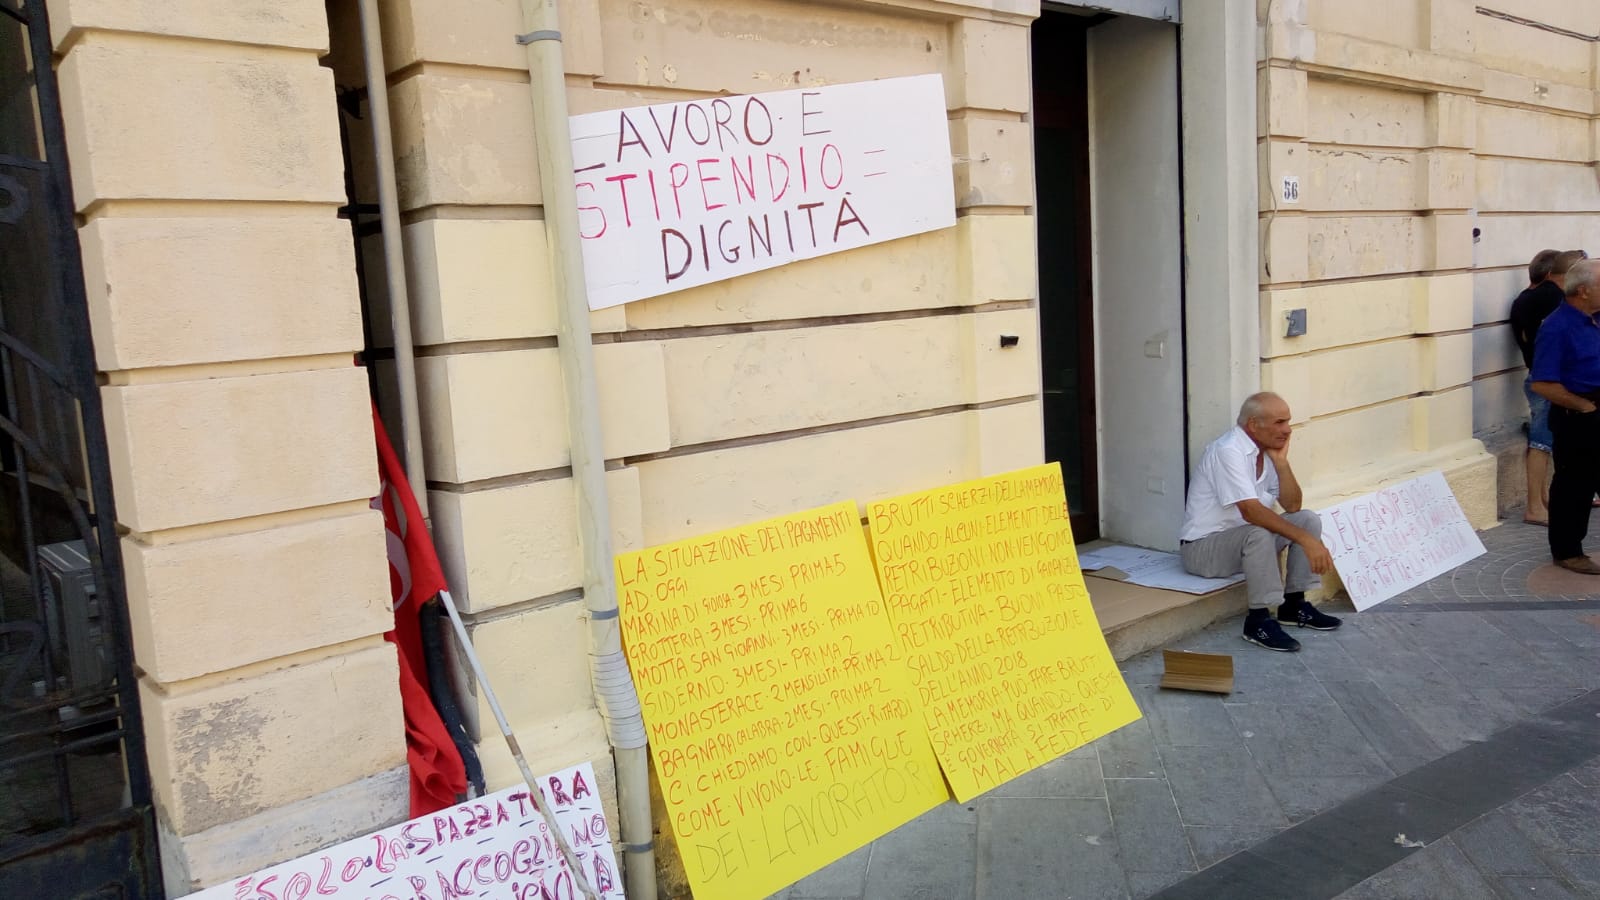 LAVORO E
STIPENDIO =
DIGNITÀ
56
LA SITUAZIONE DEI PAGAMENTI
AD OGGI
MARINA DI GIOIOSA 3 MESI PRIMA 5
GROTTERIA 3 MESI PRIMA 6
MOTTA SAN GIOVANNI 3 MESI PRIMA 10
SIDERNO 3 MESI PRIMA 2
MONASTERACE 2 MENSILITÀ PRIMA 2
BAGNARA CALABRA 2 MESI PRIMA 2
CI CHIEDIAMO CON QUESTI RITARDI
COME VIVONO LE FAMIGLIE
DEI LAVORATORI
BRUTTI SCHERZI DELLA MEMORIA
QUANDO ALCUNI ELEMENTI DELLE
RETRIBUZIONI NON VENGONO
PAGATI ELEMENTO DI GARANZIA
RETRIBUTIVA BUONI PASTO
SALDO DELLA RETRIBUZIONE
DELL'ANNO 2018
LA MEMORIA PUÒ FARE BRUTTI
SCHERZI MA QUANDO QUESTA
È GOVERNATA SI TRATTA DI
MALAFEDE
SENZA STIPENDIO
CON TUTTA LA FAMIGLIA
SOLO LA SPAZZATURA
RACCOGLIAMO